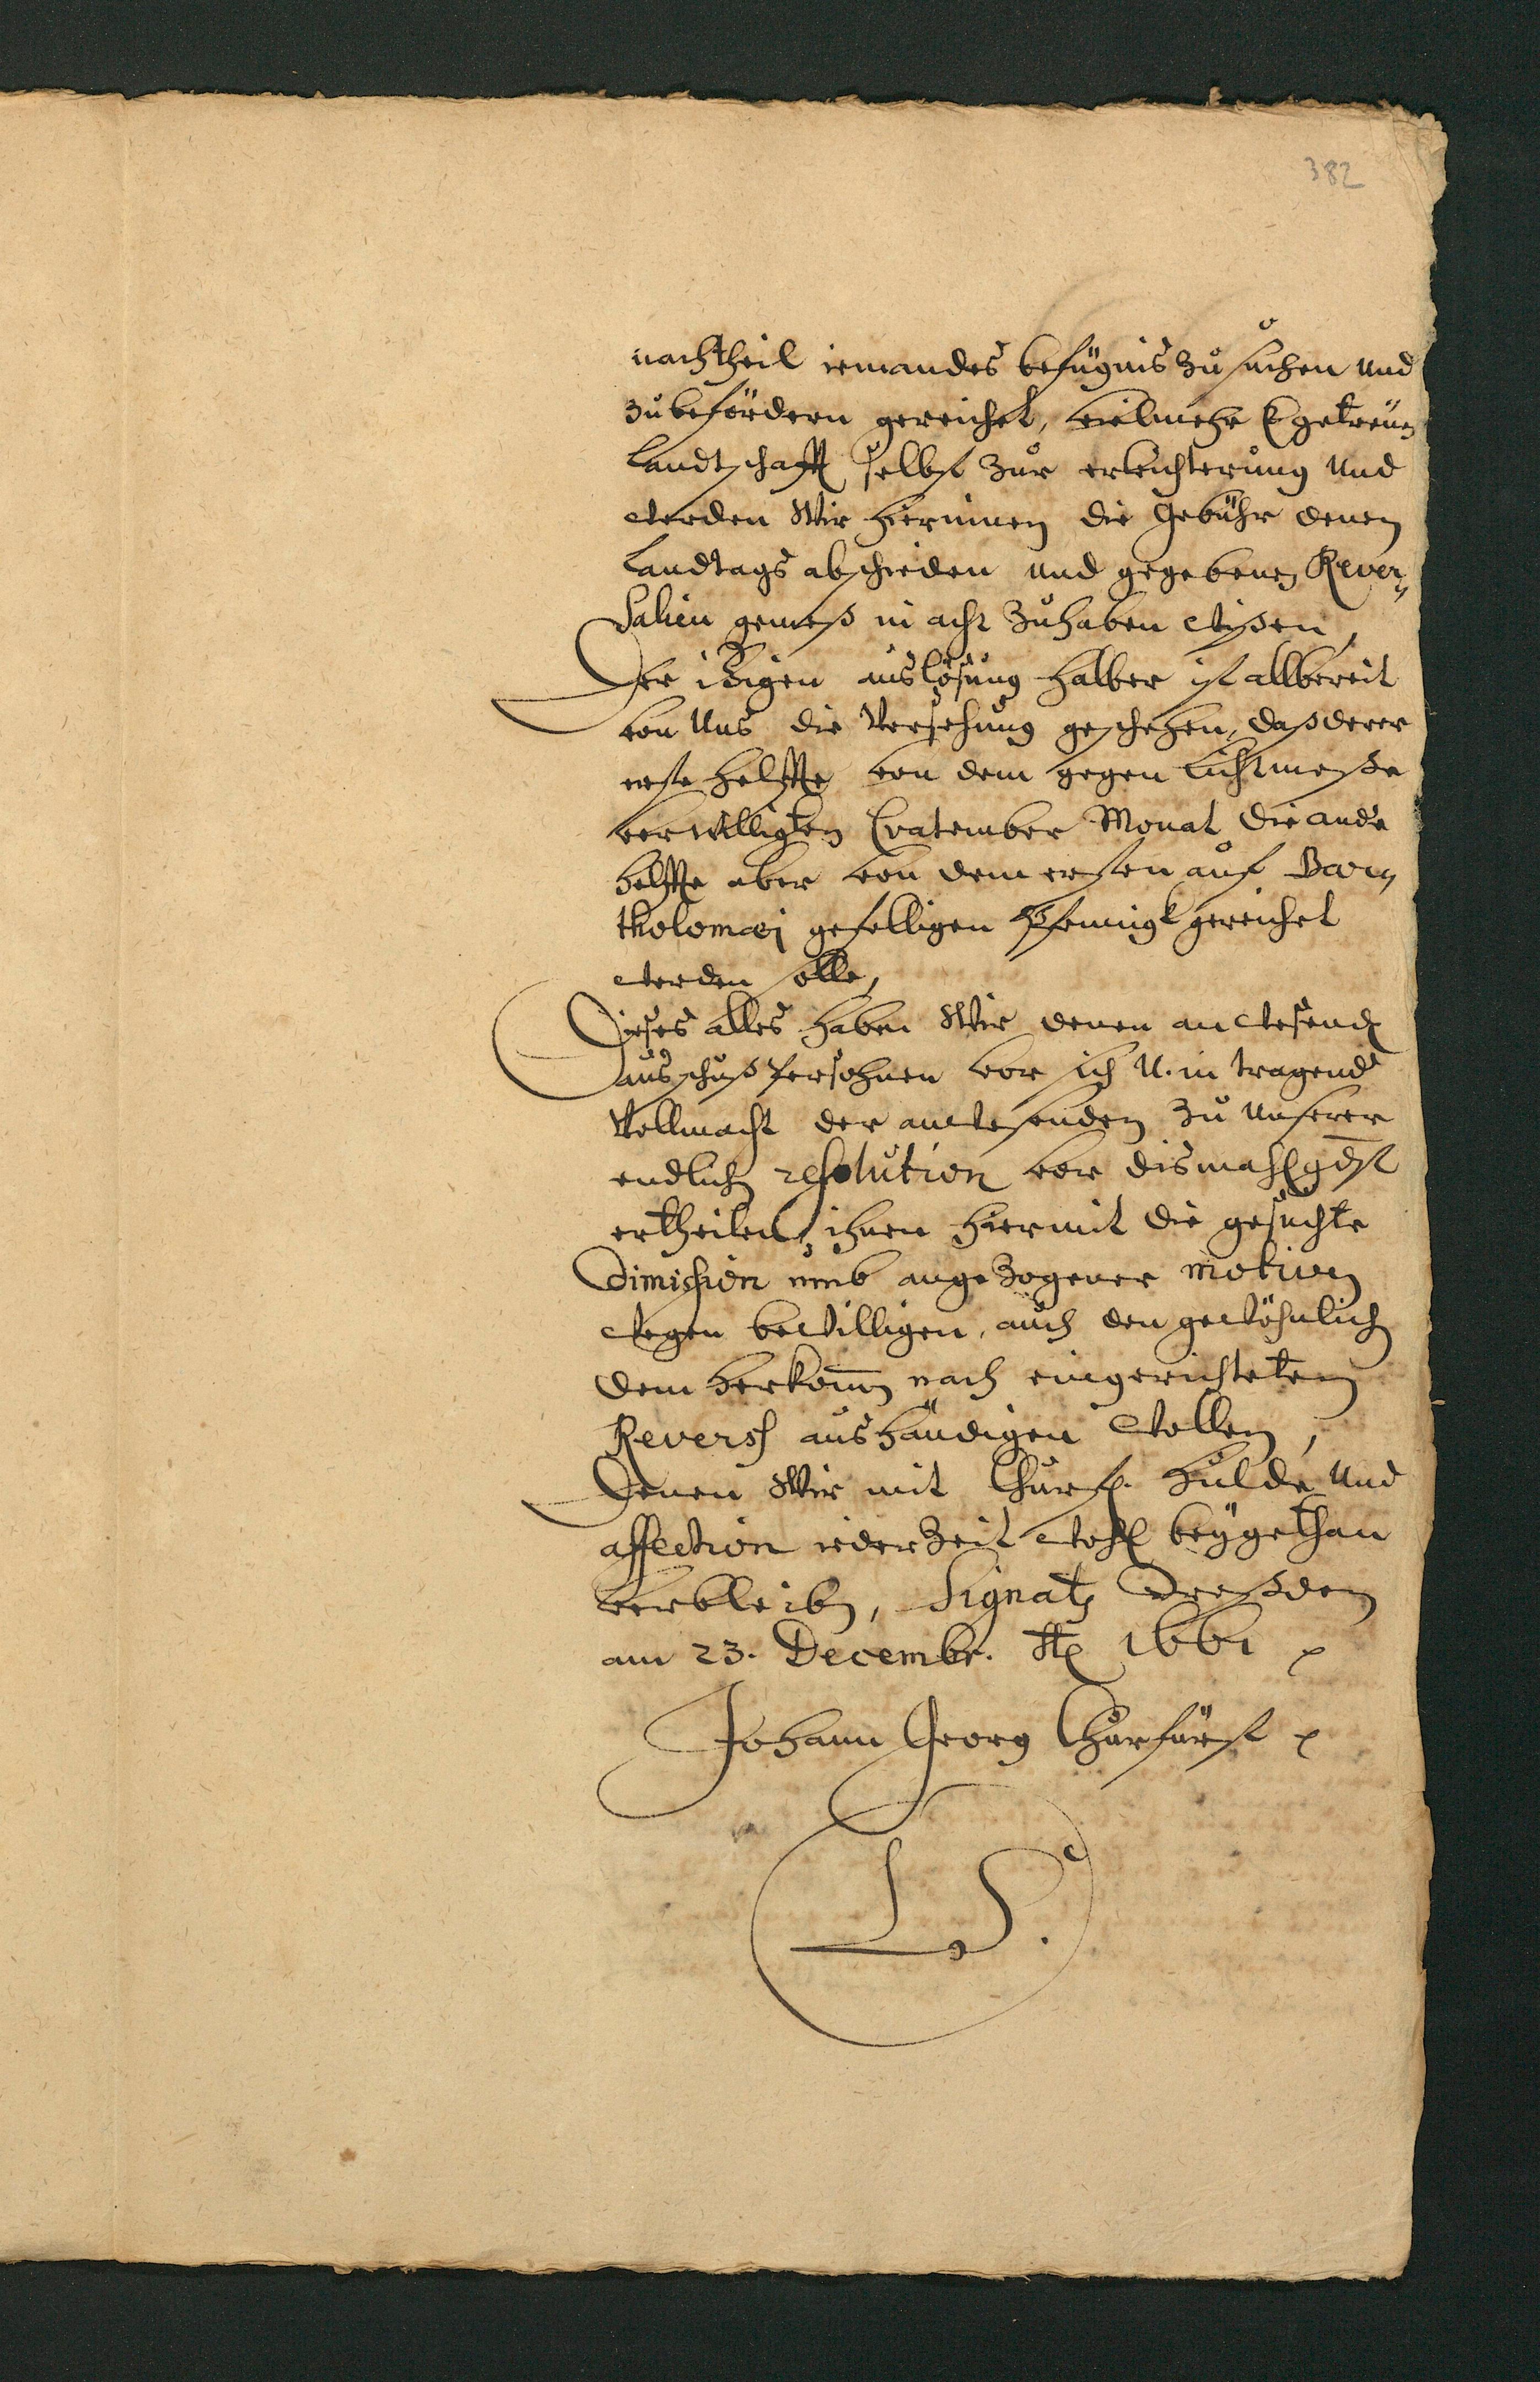 382
nachtheil iemandes befügnis zu suchen und
zubefördern gereichet, vielmehr E getreüen
Landtschafft selbst zur erleichterung und
werden Wir hierinnen die Gebühr denen
Landtags abschieden und gegebenen Rever„
salien gemeß in acht zuhaben wißen,
Der itzigen auslösung halber ist allbereit
von Uns die Versehung geschehen, daß derer
erste helffte von dem gegen Lichtmeße
verwilligten Quatember Monat die ande
helffte aber von dem ersten auf Bar„
tholomaei gefelligen Pfennigk gereichet
werden solle,
Dieses alles haben Wir denen anwesend
ausschuß Persohnen vor sich U. in tragend
Vollmacht der anwesenden zu Unserer
endlich resolution vor dismahl gdst
ertheilen, ihnen hiermit die gesuchte
Dimission umb angezogener motiven
wegen bewilligen, auch den gewöhnlich
dem herkommen nach eingerichteten
Revers aushändigen wollen,
Denen Wir mit Churf. Hulde und
affection iederzeit wohl beygethan
verbleiben, Signat Dreßden
am 23. Decembr. 1661
Johann Georg Churfürst
L S.